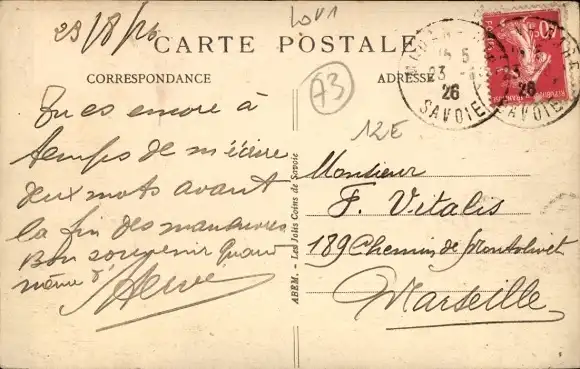 23/8/26
LOV1
CARTE POSTALE
CORRESPONDANCE
ADRESSE
73
12E
Tu es encore à
temps de m'écrire
deux mots avant
la fin des manœuvres
Bon souvenir quand
même
Hervé
ABEM. - Les Jolis Coins de Savoie
Monsieur
F. Vitalis
189 Chemin de Montolivet
Marseille
23
26
SAVOIE
23
26
SAVOIE